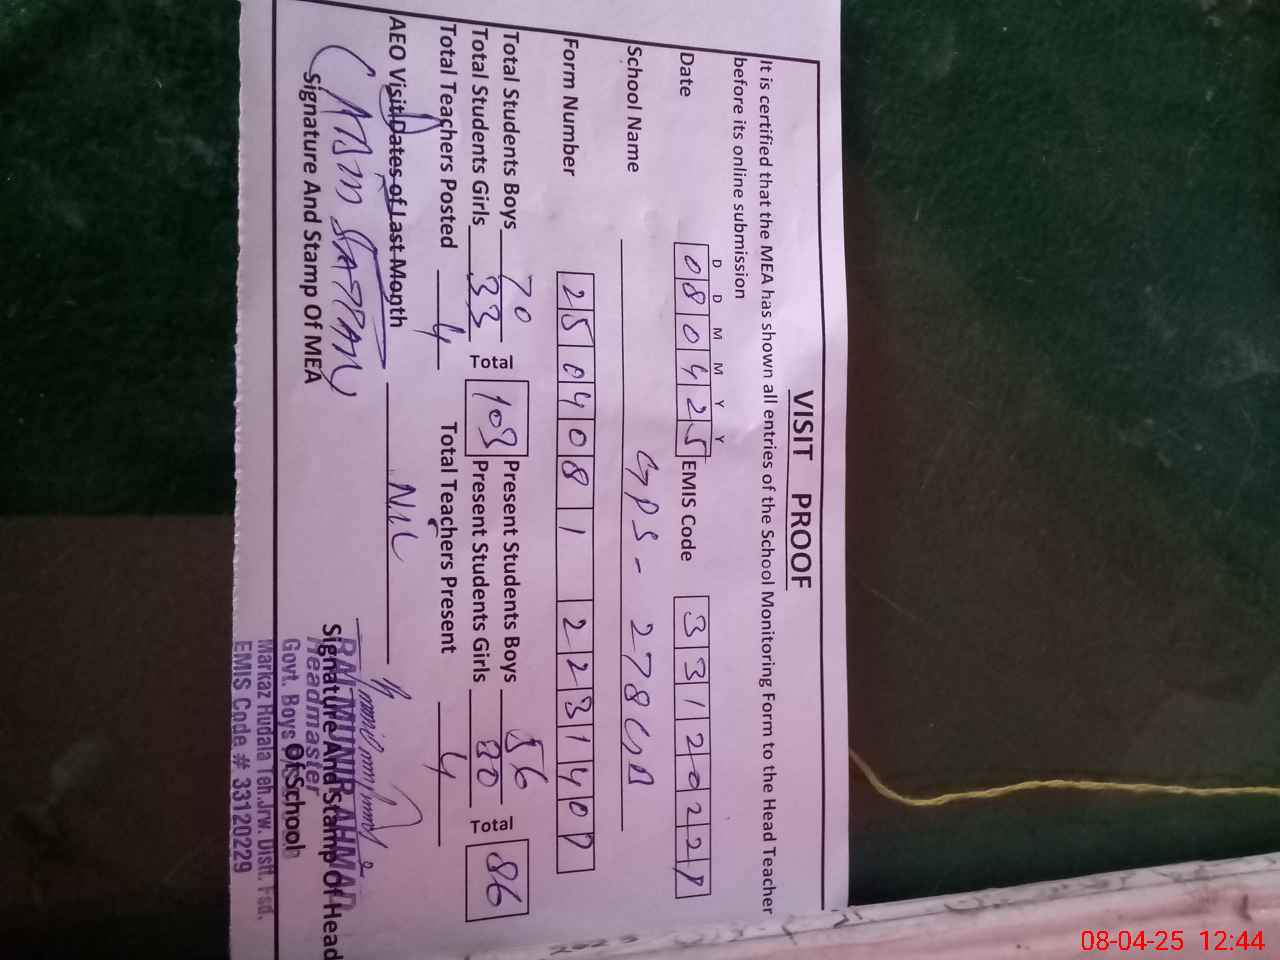 VISIT PROOF
It is certified that the MEA has shown all entries of the School Monitoring Form to the Head Teacher
before its online submission
D D M M Y Y
Date 080425 EMIS Code 33120229
School Name GPS - 278 GB
Form Number 250408 1 2231407
Total Students Boys 70 Present Students Boys 56
Total Students Girls 33 Total 103 Present Students Girls 30 Total 86
Total Teachers Posted 4 Total Teachers Present 4
AEO Visit Dates of Last Month NIL
Signature And Stamp Of MEA
Signature And Stamp Of Head
Of School
MUNIR AHMAD
Headmaster
Govt. Boys
Markaz Rudala Teh.Jrw. Distt. Fsd.
EMIS Code # 33120229
2023
08-04-25 12:44